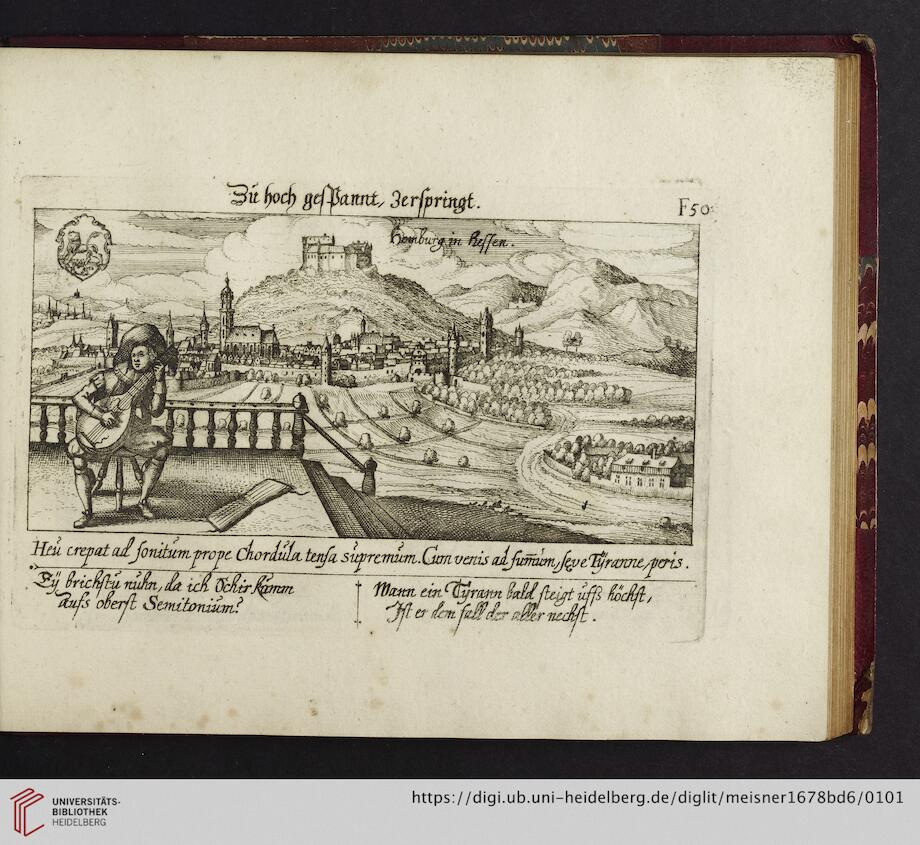 Zu hoch gespannt, zerspringt.
F50
Homburg in Hessen.
Heu crepat ad sonitum prope Chordula tensa supremum. Cum venis ad sum̄um, seve Tÿranne, peris.
Eÿ brichstu nuhn, da ich schir kamm
auffs oberst Semitonium?
Wann ein Tÿrann bald steigt uffs höchst,
Ist er dem fall der aller nechst.
UNIVERSITÄTS-
BIBLIOTHEK
HEIDELBERG
https://digi.ub.uni-heidelberg.de/diglit/meisner1678bd6/0101